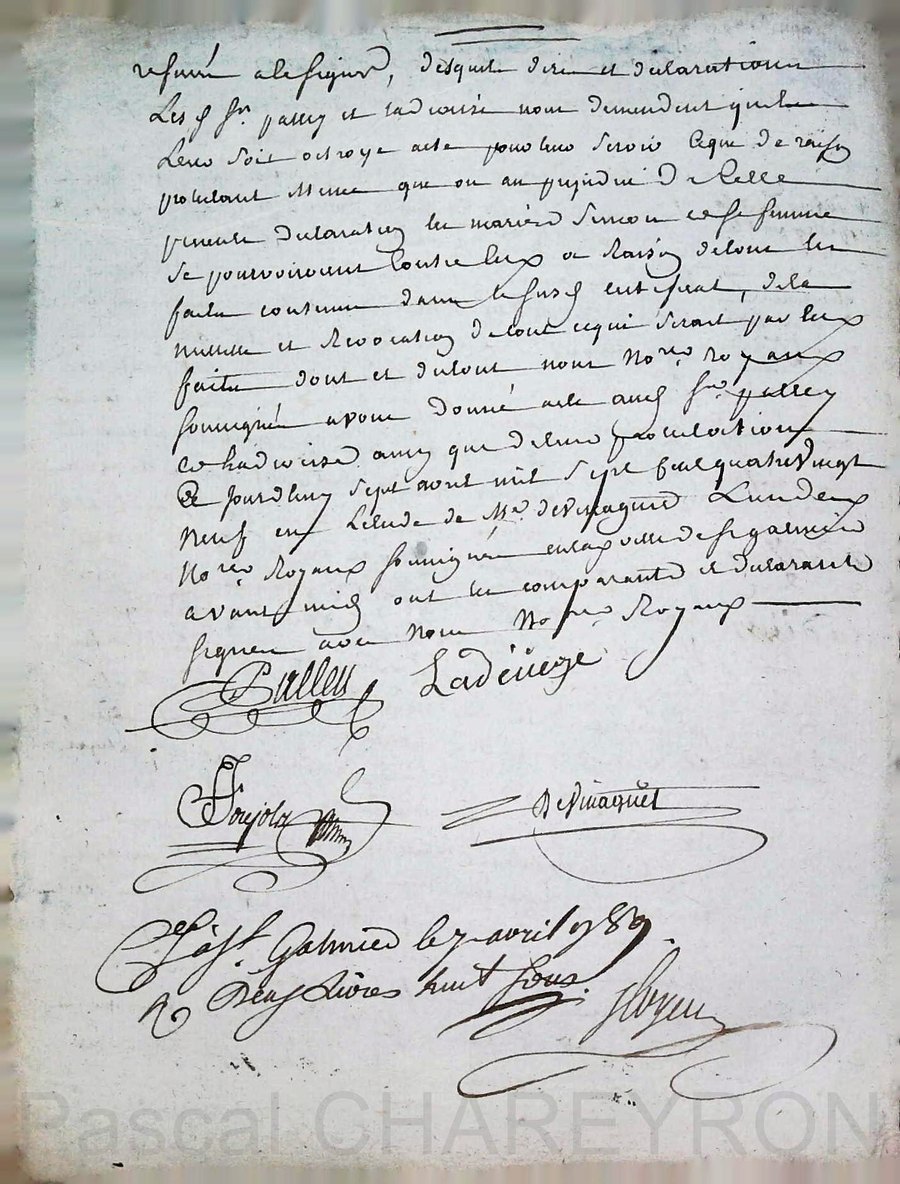 refusé a le signer, desquels dire et declarations
Les d. Srs. palley et ladevèse nous demandent quil
Leur soit octroyé acte pour leur servir ceque de raison
protestant même que ou au prejudice de Celle
presente declaration les mariés et sa femme
se pourvoiroient contre Eux a Raison de tous les
faits contenus dans le susd. certificat, de la
nullité et Revocation de tout cequi seroit par Eux
fait dont et du tout nous Nores. royaux
soussignés avons donné acte aud. Sr. palley
et ladevese ainsy que de leur protestation
Ce jourdhuy sept avril mil sept Cent quatre vingt
Neuf en Létude de Me. deVinaquet Lun des
Nores. Royaux soussignés en la ville de St galmier
avant midy ont les comparants et declarants
signés avec Nous Nores. Royaux
Palley Ladevèze
deVinaquet
à St. Galmier le 7 avril 1789.
R Deux Livres huit sous.
Pascal CHAREYRON